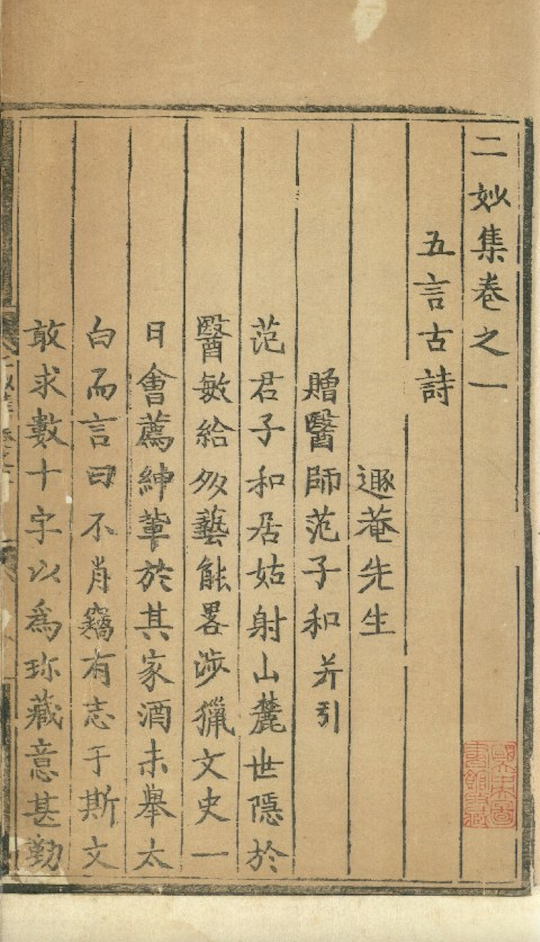 二妙集卷之一
五言古詩
遯菴先生
贈醫師范子和 并引
范君子和居姑射山麓世隱於
醫敏給多藝能畧涉獵文史一
日會薦紳輩於其家酒未舉太
白而言曰不肖竊有志于斯文
敢求數十字以為珎藏意甚勤